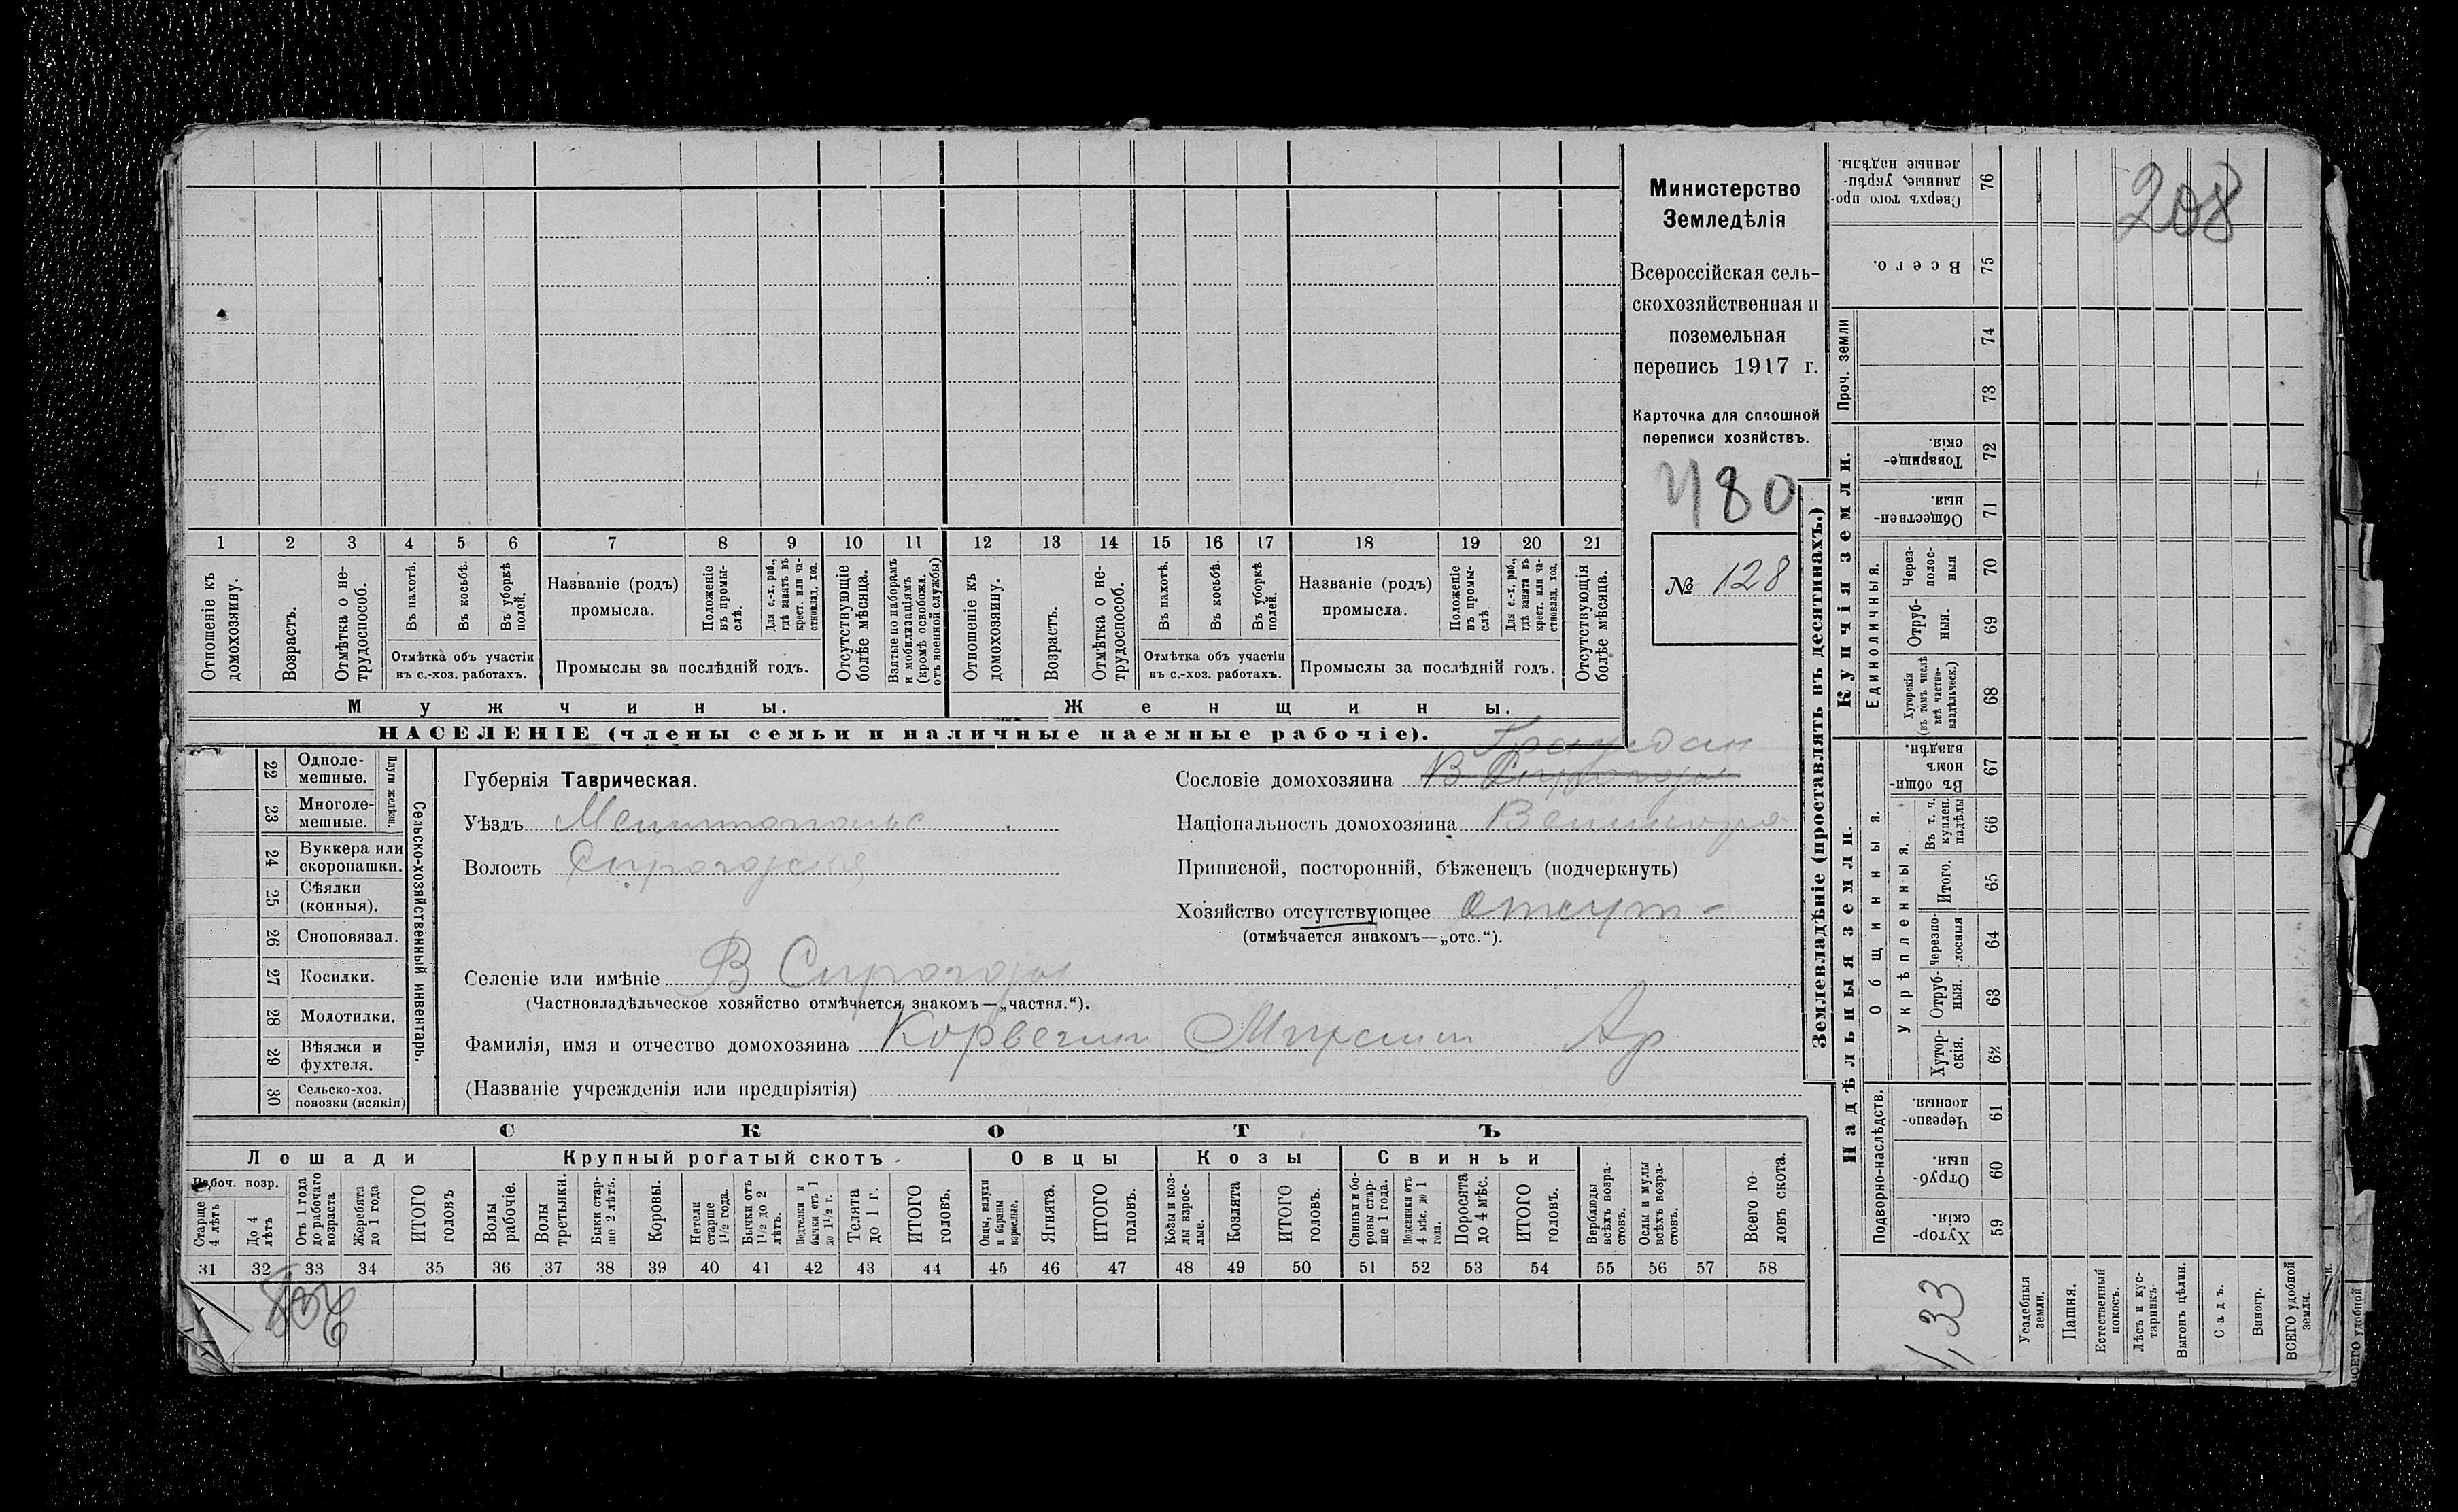 1 2 3 4 5 6 7 8 9 10 11 12 13 14 15 16 17 18 19 20 21
Отношеніе къ домохозяину.
Возрастъ.
Отмѣтка о не-
трудоспособ.
Въ пахотѣ.
Въ косьбѣ.
Въ уборкѣ
полей.
Отмѣтка объ участіи
въ с.-хоз. работахъ.
Названіе (родъ)
промысла.
Положеніе
въ промы-
слѣ.
Для с.-х. раб.,
гдѣ занятъ въ
крест. или ча-
стновлад. хоз.
Промыслы за послѣдній годъ.
Отсутствующіе
болѣе мѣсяца.
Взятые по наборамъ
и мобилизаціямъ
(кромѣ освобожд.
отъ военной службы)
Отношеніе къ
домохозяину.
Возрастъ.
Отмѣтка о не-
трудоспособ.
Въ пахотѣ.
Въ косьбѣ.
Въ уборкѣ
полей.
Отмѣтка объ участіи
въ с.-хоз. работахъ.
Названіе (родъ)
промысла.
Положеніе
въ промы-
слѣ.
Для с.-х. раб.,
гдѣ занята въ
крест. или ча-
стновлад. хоз.
Промыслы за послѣдній годъ.
Отсутствующія
болѣе мѣсяца.
Мужчины.
Женщины.
НАСЕЛЕНІЕ (члены семьи и наличные наемные рабочіе).
Министерство
Земледѣлія
Всероссійская сель-
скохозяйственная и
поземельная
перепись 1917 г.
Карточка для сплошной
переписи хозяйствъ.
480
№ 128
22 Одноле-
мешные.
23 Многоле-
мешные.
Плуги желѣзн.
24 Буккера или
скоропашки.
25 Сѣялки
(конныя).
26 Сноповязал.
27 Косилки.
28 Молотилки.
29 Вѣялки и
фухтеля.
30 Сельско-хоз.
повозки (всякія)
Сельско-хозяйственный инвентарь.
Губернія Таврическая.
Уѣздъ
Волость
Граждан
Сословіе домохозяина В Сирогозы
Національность домохозяина Великоро
Приписной, посторонній, бѣженецъ (подчеркнуть)
Хозяйство отсутствующее Отсут-
(отмѣчается знакомъ—„отс.“).
Селеніе или имѣніе В Сирогозы
(Частновладѣльческое хозяйство отмѣчается знакомъ—„частвл.“).
Фамилія, имя и отчество домохозяина
(Названіе учрежденія или предпріятія)
СКОТЪ
Лошади
Крупный рогатый скотъ
Овцы
Козы
Свиньи
Рабоч. возр.
Старше
4 лѣтъ
До 4
лѣтъ
Отъ 1 года
до рабочаго
возраста
Жеребята
до 1 года
ИТОГО
головъ
Волы
рабочіе.
Волы
третьяки.
Быки стар-
ше 2 лѣтъ.
Коровы.
Нетели
старше
1½ года.
Бычки отъ
1½ до 2
лѣтъ.
Подтелки и
бычки отъ 1
до 1½ г.
Телята
до 1 г.
ИТОГО
головъ.
Овцы, валухи
и бараны
взрослые.
Ягнята.
ИТОГО
головъ.
Козы и коз-
лы взрос-
лые.
Козлята
ИТОГО
головъ.
Свиньи и бо-
ровы стар-
ше 1 года.
Подсвинки отъ
4 мѣс. до 1
года.
Поросята
до 4 мѣс.
ИТОГО
головъ.
Верблюды
всѣхъ возра-
стовъ.
Ослы и мулы
всѣхъ возра-
стовъ.
Всего го-
ловъ скота.
31 32 33 34 35 36 37 38 39 40 41 42 43 44 45 46 47 48 49 50 51 52 53 54 55 56 57 58
208
Землевладѣніе (проставлять въ десятинахъ.)
208
Сверхъ того про-
данные, укрѣп-
ленные надѣлы.
76
Всего.
75
Проч. земли
74
73
Купчія земли.
Товарище-
скія.
72
Обществен-
ныя.
71
Единоличныя.
Через-
полос-
ныя
70
Отруб-
ныя.
69
Хуторскія
(въ томъ числѣ
всѣ частно-
владѣльческ.)
68
Надѣльныя земли.
Общинныя.
Въ общин-
номъ
владѣн.
67
Укрѣпленныя.
Въ т. ч.
куплен.
надѣлы
66
Итого.
65
Черезпо-
лосныя
64
Отруб-
ныя.
63
Хутор-
скія.
62
Подворно-наслѣдств.
Черезпо-
лосныя.
61
Отруб-
ныя.
60
Хутор-
скія.
59
1,33
Усадебныя
земли.
Пашня.
Естественный
покосъ.
Лѣсъ и кус-
тарникъ.
Выгонъ цѣлин.
Садъ.
Виногр.
ВСЕГО удобной
земли.